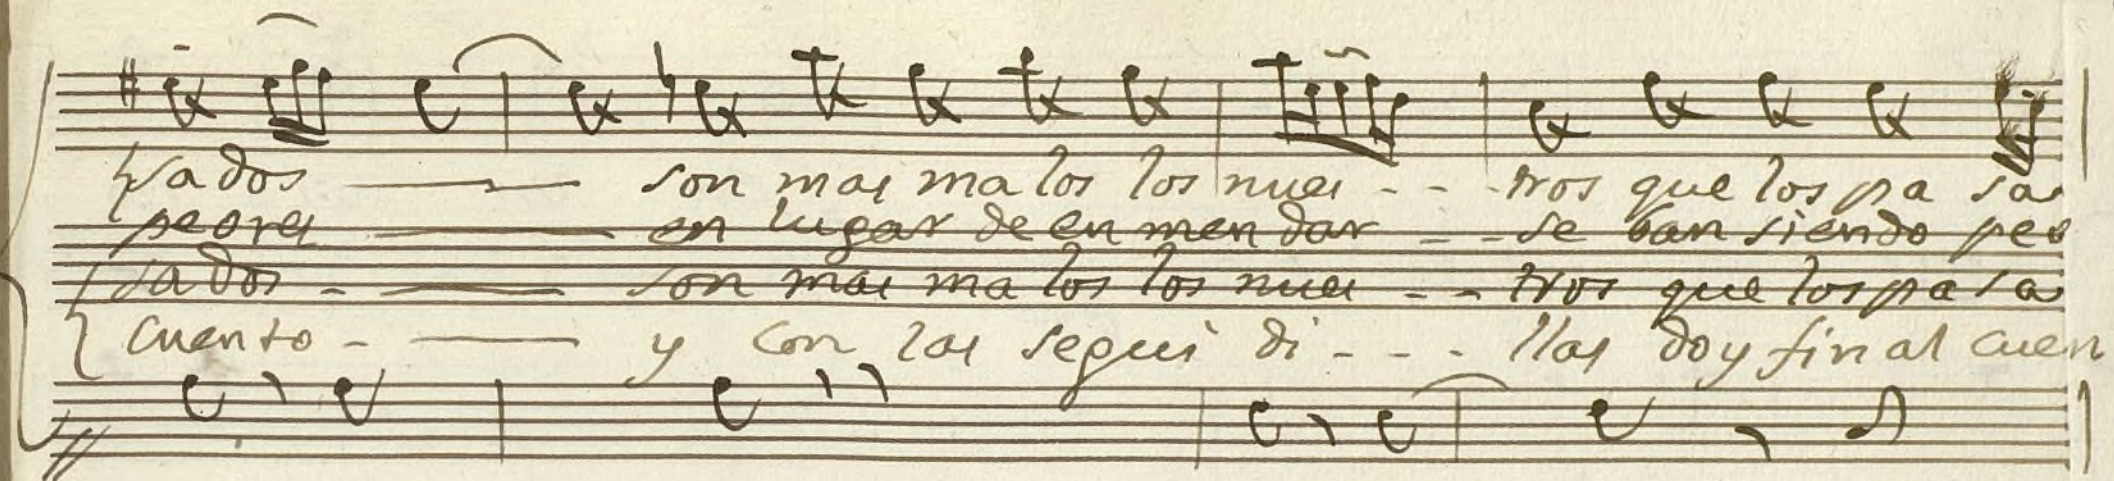 sados ——— son mas ma los los nues - - - tros que los pa sa
peores ——— en lugar de en men dar - - se ban siendo peo
sados - ——— son mas ma los los nues - - tros que los pa sa
cuento - ——— y con las segui di - - - llas doy fin al cuen